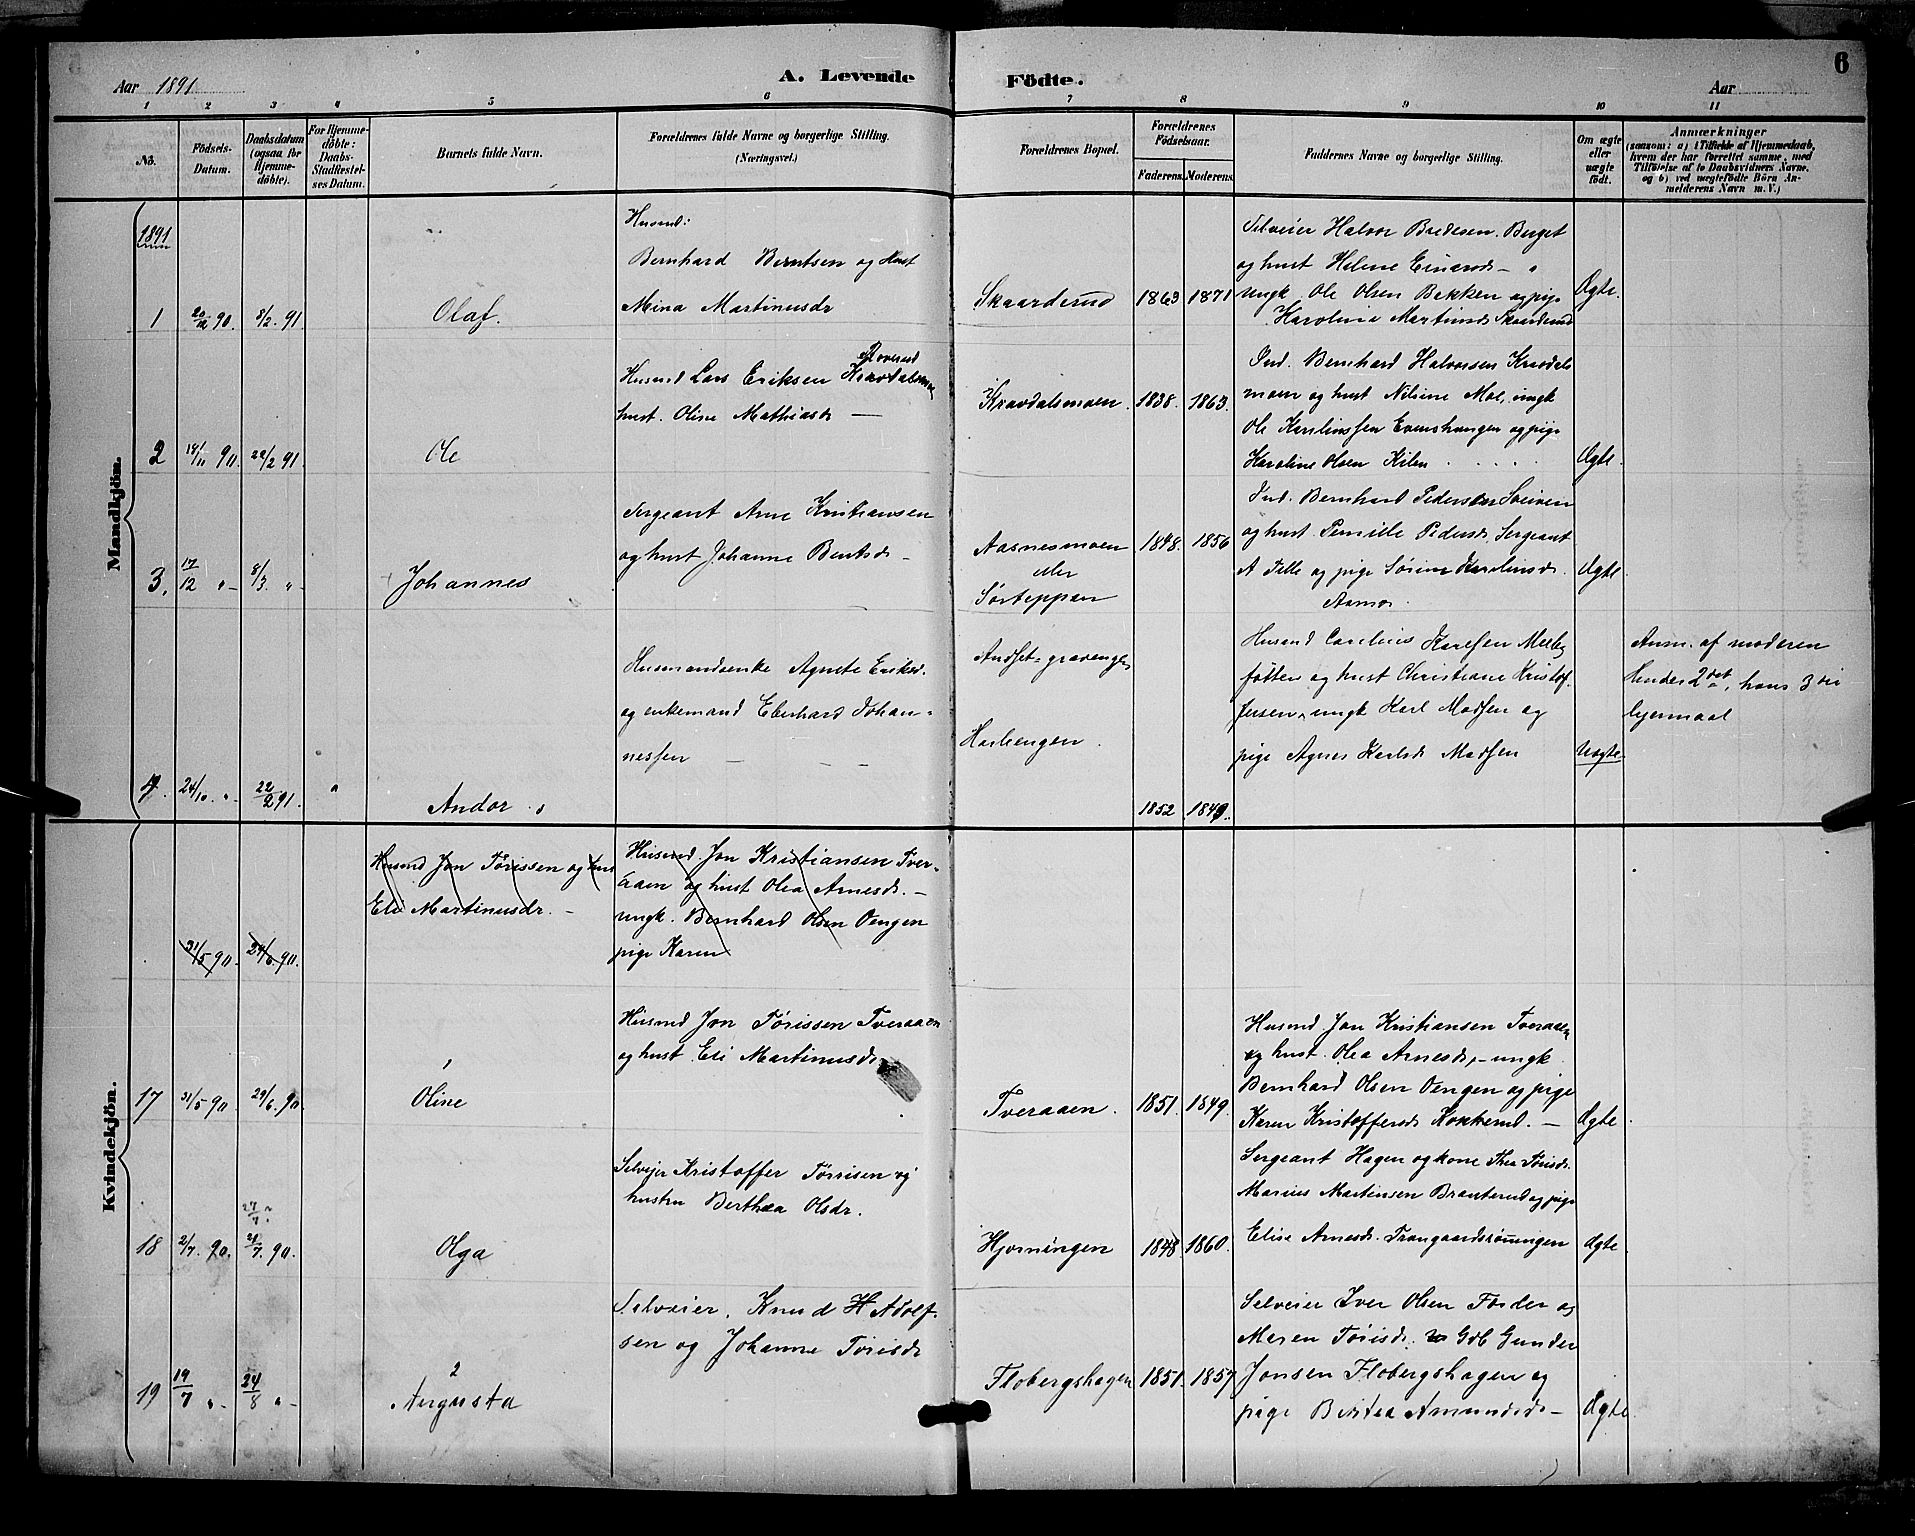 6
Aar 1891 A. Levende Födte. Aar
1 2 3 4 5 6 7 8 9 10 11
No.
Födsels-
Datum.
Daabsdatum
(ogsaa for
Hjemme-
döbte).
For Hjemme-
döbte:
Daabs-
Stadfæstel-
ses Datum.
Barnets fulde Navn.
Forældrenes fulde Navne og borgerlige Stilling.
(Næringsvei.)
Forældrenes Bopæl.
Forældrenes
Födselsaar.
Faderens. Moderens.
Faddernes Navne og borgerlige Stilling.
Om ægte
eller
uægte
født.
Anmærkninger
(saasom: a) i Tilfælde af Hjemmedaab,
hvem der har forrettet samme, med
Tilföielse af to Daabsvidners Navne,
og b) ved uægtefödte Börn An-
melderens Navn m. V.)
Mandkjön.
1891
1 20/12 90. 8/2. 91
Olaf.
Husmd:
Bernhard Berntsen og Hust
Mina Martinusdr
Skaarderud 1863 1871
Selveier Halvor Bredesen Berget
og hust Helene Einarsd – "
Ungk. Ole Olsen Bakken og pige
Karoline Martinsd. Skaarderud
Ægte.
2 14/11 90. 22/2 91
Ole
Husmd Lars Eriksen Kravdalsmoen
hust. Oline Mathiasdr —
Kravdalsmoen. 1838. 1863.
Ind. Bernhard Halvorsen Kravdals
moen og hust Nilsine Moe, ungk
Ole Karlinssen Evenshaugen og pige
Karoline Olsen Kilen
Ægte.
3. 17/12 " – 8/3. " –
Johannes
Sergeant Arne Kristiansen
og hust Johanne Berntsd. –
Aasnesmoen 1848. 1856
eller
Sörteppen
Ind. Bernhard Pedersen Sveiven
og hust Pernille Pedersd. Sergeant
A Telle og pige Sörine Karelinsd.
Aamos.
Ægte
4. 24/10. " – 22/2 91. "
Andor
Husmandsenke Agnete Eriksd.
og enkemand Eberhard Johan-
nessen – –
Andset-gravengen
Hasliengen.
1852 1849.
Husmd Carelius Karlsen Melbg
fötten og hust Christiane Kristof-
fersen, ungk Karl Madsen og
pige Agnes Karlsd. Madsen
Uægte
Anm. af moderen
hendes 2det, hans 3die
leiermaal
Kvindekjön.
31/5 90. 24/6. 90.
Husmd Jon Törissen og hust
Eli Martinusdr. –
Husmd. Jon Kristiansen Tver-
aaen og hust Olea Arnesd. –
ungk. Bernhard Olsen Oengen
pige Karen
17 31/5 90. 29/6. 90
Oline
Husmd Jon Törissen Tveraaen
og hust Eli Martinusdr
Tveraaen. 1851. 1849.
Husmd Jon Kristiansen Tveraaen
og hust. Olea Arnesd, – ungk
Bernhard Olsen Oengen og pige
Karen Kristoffersd. Kokkerud. –
Ægte
18 2/7. 90. 27/7. 90.
27/7.
Olga
Selvejer Kristoffer Törrisen og
hustru Berthea Olsdr.
Hjorningen 1848 1860.
Sergeant Hagen og kone Thea Törisd.
Marius Martinsen Branterud og pige
Elise Arnesd. Trangaardsrönningen
Ægte
19 19/7 " – 24/8 " –
2
Augusta
Selveier. Knud H Adolf-
sen og Johanne Torisdr
Flobergshagen 1851. 1857
Selveier Iver Olsen Förder og
Maren Törisdr. Gdb Gunder
Jonsen Flobergshagen og
pige Amundsd –
Ægte.